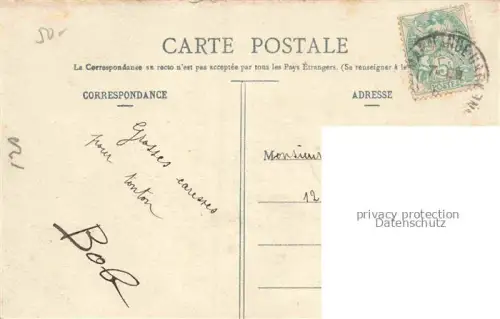 50.-
CARTE POSTALE
La Correspondance au recto n'est pas acceptée par tous les Pays Étrangers. (Se renseigner à
CORRESPONDANCE
ADRESSE
Grosses caresses
pour tonton
Bob
Monsieur
12
privacy protection
Datenschutz
5
POSTES